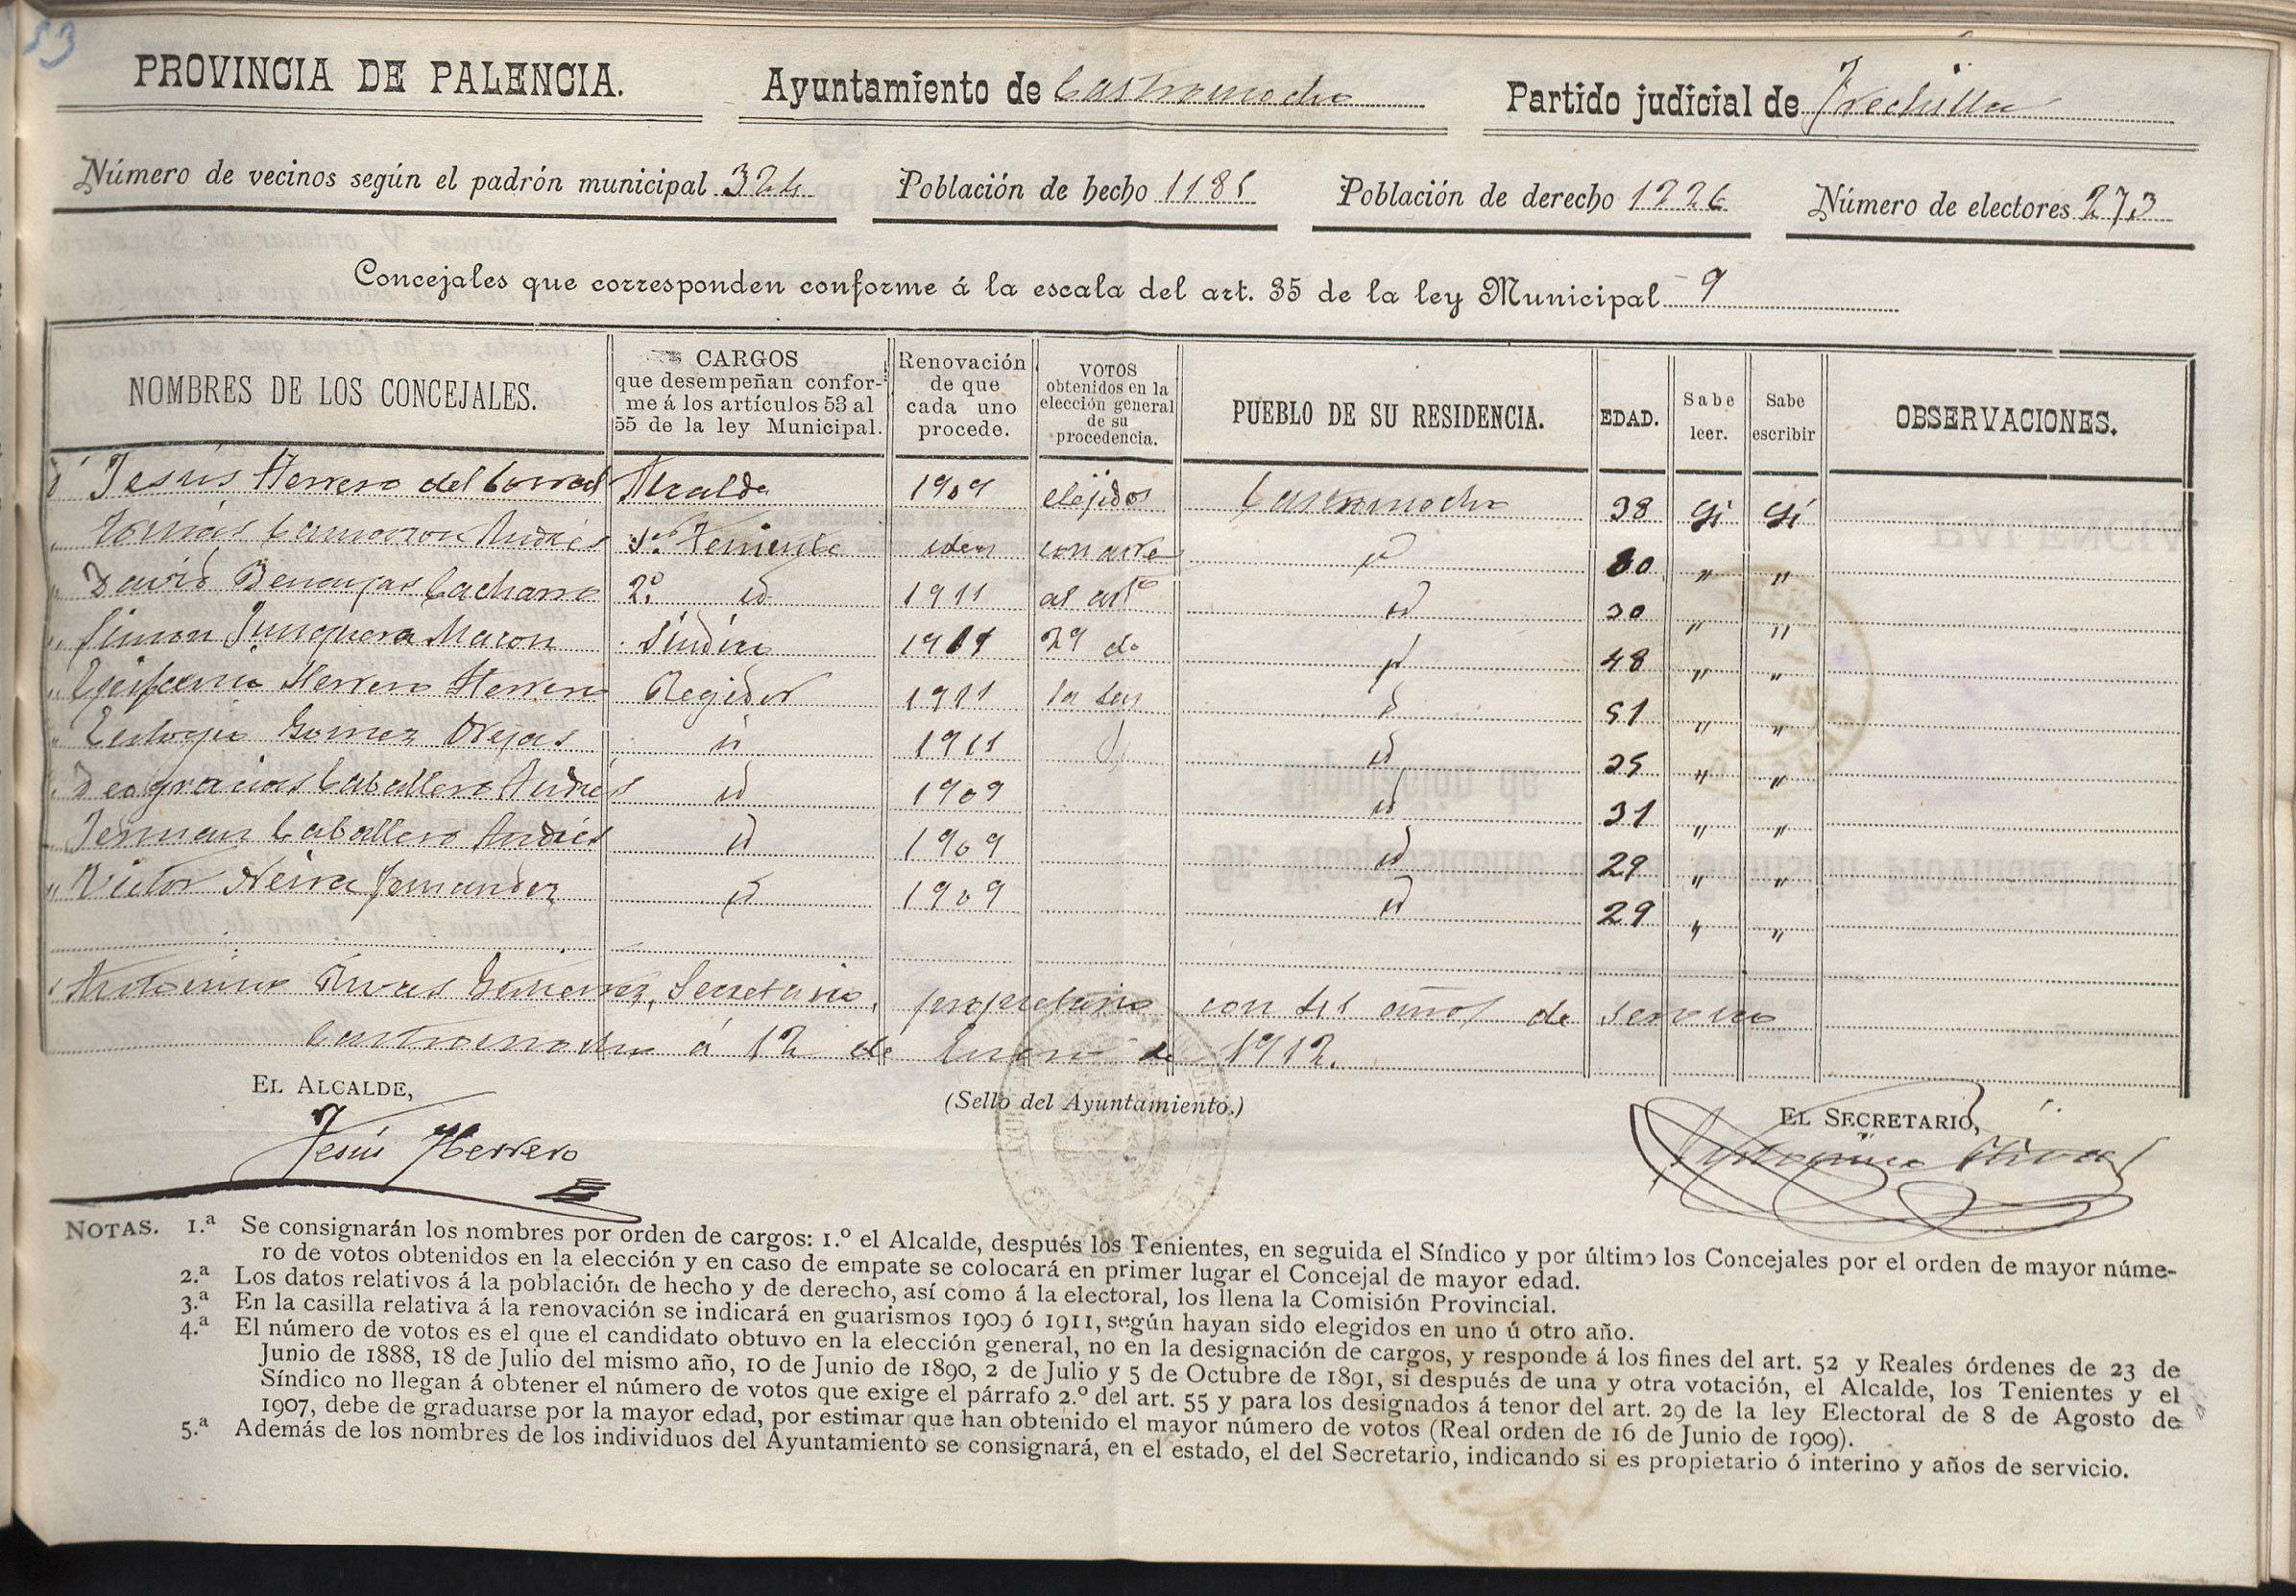 53
PROVINCIA DE PALENCIA. Ayuntamiento de Castromocho Partido judicial de Frechilla
Número de vecinos según el padrón municipal 324 Población de hecho 1185 Población de derecho 1226 Número de electores 273
Concejales que corresponden conforme á la escala del art. 35 de la ley Municipal 9
NOMBRES DE LOS CONCEJALES. CARGOS que desempeñan conforme á los artículos 53 al 55 de la ley Municipal. Renovación de que cada uno procede. VOTOS obtenidos en la elección general de su procedencia. PUEBLO DE SU RESIDENCIA. EDAD. Sabe leer. Sabe escribir OBSERVACIONES.
D. Jesús Herrero del Corral Alcalde 1909 elejidos Castromocho 38 Si Si
" Tomás Camazon Andrés 1.º Teniente idem con arre id 30 " "
" David Benayas Cacharro 2.º id 1911 al artº id 30 " "
" Simon Junquera Macon Sindico 1911 29 de id 48 " "
" Epifanio Herrero Herrero Regidor 1911 la ley id 51 " "
" Eulogio Gomez Orejas id 1911 id 35 " "
" Deogracias Caballero Andrés id 1909 id 31 " "
" German Caballero Andrés id 1909 id 29 " "
" Victor Neira Fernandez id 1909 id 29 " "
" Antonino Rivas Gutierrez, Secretario, propietario con 41 años de servicio
Castromocho á 12 de Enero de 1912.
EL ALCALDE, (Sello del Ayuntamiento.) EL SECRETARIO,
Jesús Herrero Antonino Rivas
NOTAS. 1.ª Se consignarán los nombres por orden de cargos: 1.º el Alcalde, después los Tenientes, en seguida el Síndico y por último los Concejales por el orden de mayor núme-
ro de votos obtenidos en la elección y en caso de empate se colocará en primer lugar el Concejal de mayor edad.
2.ª Los datos relativos á la población de hecho y de derecho, así como á la electoral, los llena la Comisión Provincial.
3.ª En la casilla relativa á la renovación se indicará en guarismos 1909 ó 1911, según hayan sido elegidos en uno ú otro año.
4.ª El número de votos es el que el candidato obtuvo en la elección general, no en la designación de cargos, y responde á los fines del art. 52 y Reales órdenes de 23 de
Junio de 1888, 18 de Julio del mismo año, 10 de Junio de 1890, 2 de Julio y 5 de Octubre de 1891, si después de una y otra votación, el Alcalde, los Tenientes y el
Síndico no llegan á obtener el número de votos que exige el párrafo 2.º del art. 55 y para los designados á tenor del art. 29 de la ley Electoral de 8 de Agosto de
1907, debe de graduarse por la mayor edad, por estimar que han obtenido el mayor número de votos (Real orden de 16 de Junio de 1909).
5.ª Además de los nombres de los individuos del Ayuntamiento se consignará, en el estado, el del Secretario, indicando si es propietario ó interino y años de servicio.